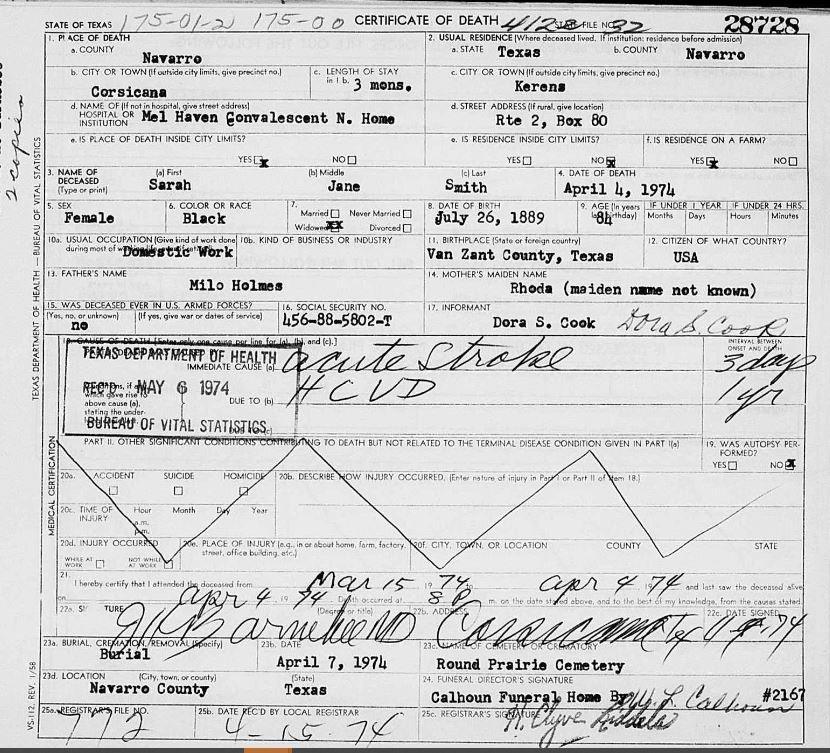 STATE OF TEXAS 175-01-2 175-00 CERTIFICATE OF DEATH STATE FILE NO. 28728
1. PLACE OF DEATH
a. COUNTY
Navarro
2. USUAL RESIDENCE (Where deceased lived. If institution: residence before admission)
a. STATE Texas b. COUNTY Navarro
b. CITY OR TOWN (If outside city limits, give precinct no.)
Corsicana
c. LENGTH OF STAY in 1 b.
3 mons.
c. CITY OR TOWN (If outside city limits, give precinct no.)
Kerens
d. NAME OF (If not in hospital, give street address)
HOSPITAL OR INSTITUTION Mel Haven Convalescent N. Home
d. STREET ADDRESS (If rural, give location)
Rte 2, Box 80
e. IS PLACE OF DEATH INSIDE CITY LIMITS?
YES x NO
e. IS RESIDENCE INSIDE CITY LIMITS?
YES NO x
f. IS RESIDENCE ON A FARM?
YES x NO
3. NAME OF DECEASED (Type or print)
(a) First (b) Middle (c) Last
Sarah Jane Smith
4. DATE OF DEATH
April 4, 1974
5. SEX
Female
6. COLOR OR RACE
Black
7.
Married Never Married
Widowed xx Divorced
8. DATE OF BIRTH
July 26, 1889
9. AGE (In years last birthday)
84
IF UNDER 1 YEAR
Months Days
IF UNDER 24 HRS.
Hours Minutes
10a. USUAL OCCUPATION (Give kind of work done during most of
Domestic Work
10b. KIND OF BUSINESS OR INDUSTRY
11. BIRTHPLACE (State or foreign country)
Van Zant County, Texas
12. CITIZEN OF WHAT COUNTRY?
USA
13. FATHER'S NAME
Milo Holmes
14. MOTHER'S MAIDEN NAME
Rhoda (maiden name not known)
15. WAS DECEASED EVER IN U.S. ARMED FORCES?
(Yes, no, or unknown) (If yes, give war or dates of service)
no
16. SOCIAL SECURITY NO.
456-88-5802-T
17. INFORMANT
Dora S. Cook Dora S. Cook
18. CAUSE OF DEATH [Enter only one cause per line for (a), (b), and (c).]
INTERVAL BETWEEN ONSET AND DEATH
TEXAS DEPARTMENT OF HEALTH
REC'D MAY 6 1974
BUREAU OF VITAL STATISTICS
IMMEDIATE CAUSE (a) acute stroke 3 day
DUE TO (b) HCVD 1 yr
PART II. OTHER SIGNIFICANT CONDITIONS CONTRIBUTING TO DEATH BUT NOT RELATED TO THE TERMINAL DISEASE CONDITION GIVEN IN PART I(a)
19. WAS AUTOPSY PERFORMED?
YES NO x
20a. ACCIDENT SUICIDE HOMICIDE
20b. DESCRIBE HOW INJURY OCCURRED. (Enter nature of injury in Part I or Part II of item 18.)
20c. TIME OF INJURY
Hour Month Day Year
a.m.
p.m.
20d. INJURY OCCURRED
WHILE AT WORK NOT WHILE AT WORK
20e. PLACE OF INJURY (e.g., in or about home, farm, factory, street, office building, etc.)
20f. CITY, TOWN, OR LOCATION COUNTY STATE
21.
I hereby certify that I attended the deceased from Mar 15 1974 apr 4 1974 and last saw the deceased alive
on apr 4 1974 Death occurred at 8 P m. on the date stated above, and to the best of my knowledge, from the causes stated.
(Degree or title) 22b. ADDRESS 22c. DATE SIGNED
MD Corsicana
23a. BURIAL, CREMATION, REMOVAL (Specify)
Burial
23b. DATE
April 7, 1974
23c. NAME OF CEMETERY OR CREMATORY
Round Prairie Cemetery
23d. LOCATION (City, town, or county) (State)
Navarro County Texas
24. FUNERAL DIRECTOR'S SIGNATURE
Calhoun Funeral Home By Calhoun #2167
25a. REGISTRAR'S FILE NO.
772
25b. DATE REC'D BY LOCAL REGISTRAR
4-15-74
25c. REGISTRAR'S SIGNATURE
TEXAS DEPARTMENT OF HEALTH — BUREAU OF VITAL STATISTICS
MEDICAL CERTIFICATION
VS-112, REV. 1/58
2 copies